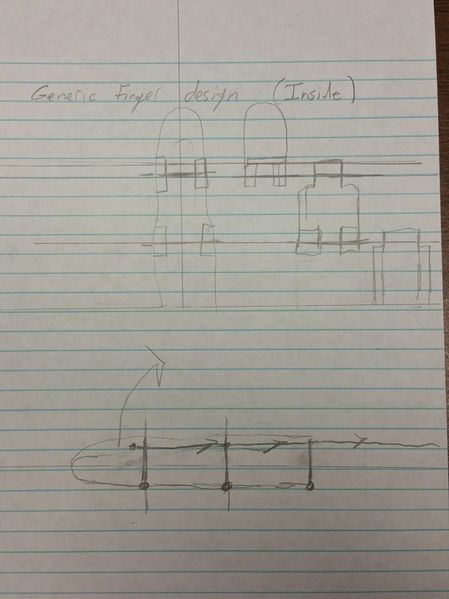 Generic Finger design (Inside)